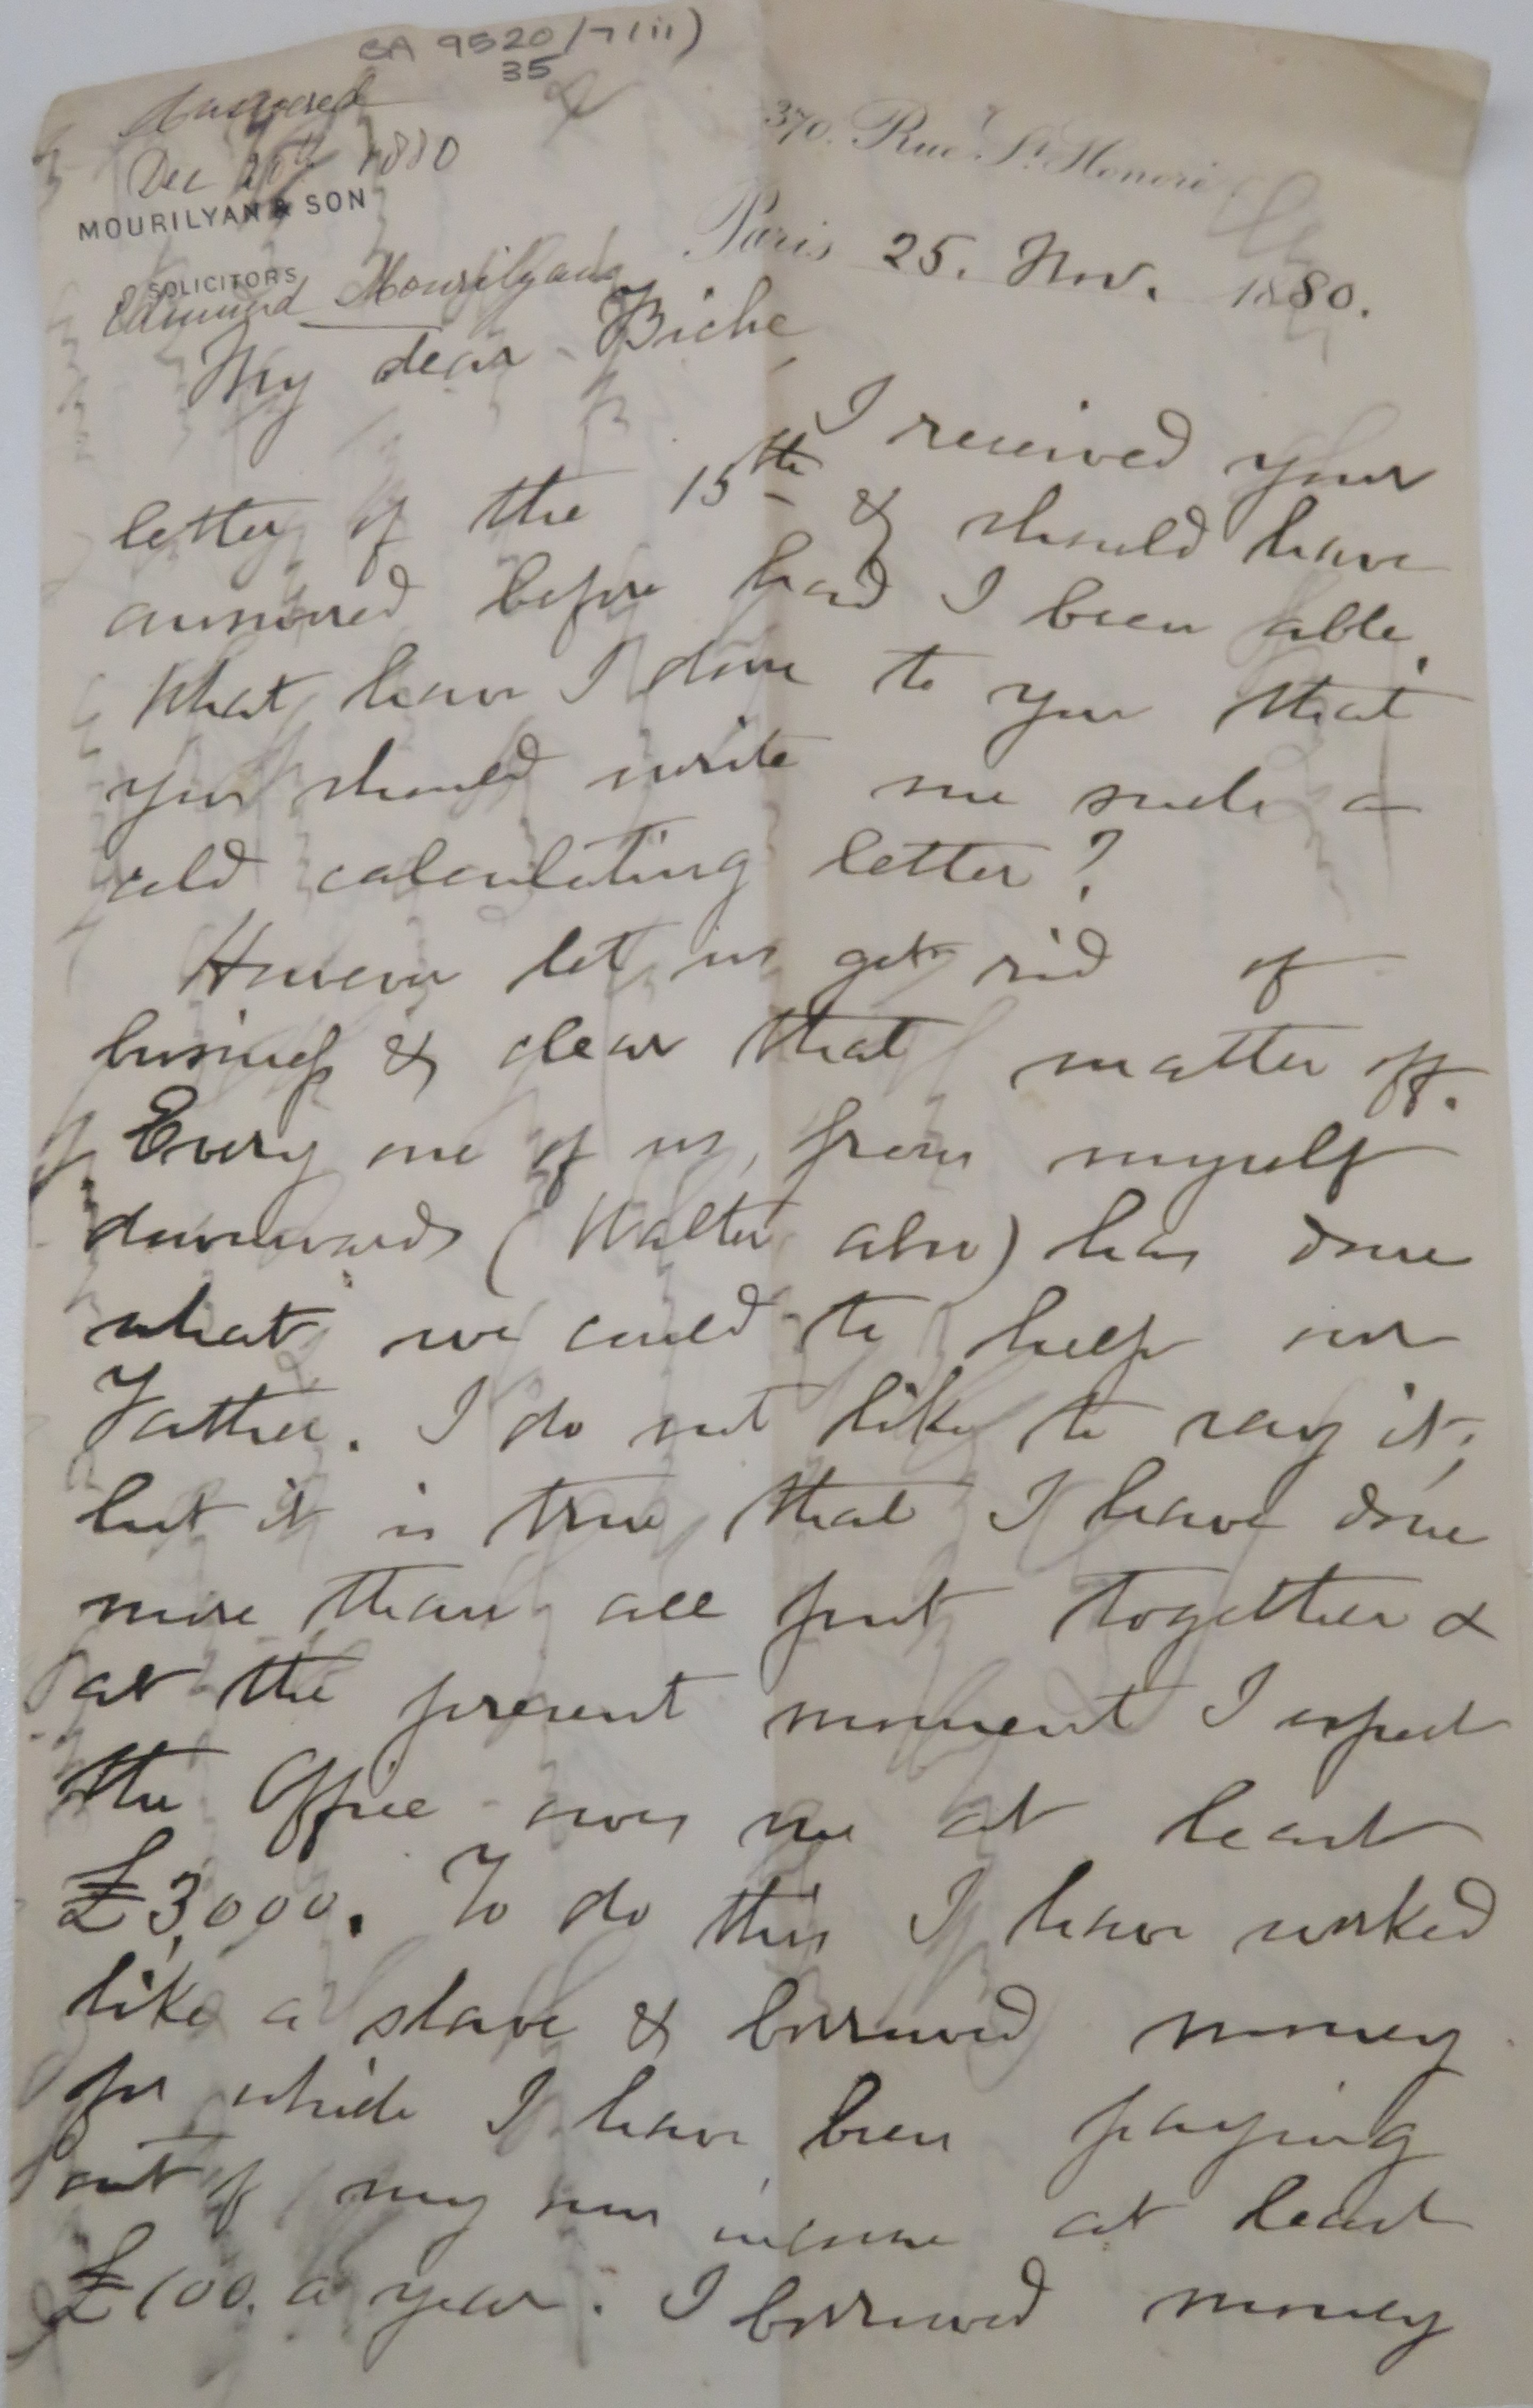 BA 9520/7(ii)
35
Answered
Dec 20th 1880
MOURILYAN & SON
SOLICITORS
Edmund Mourilyan
370. Rue St. Honoré
Paris 25. Nov. 1880.
My dear Biche,
I received your
letter of the 15th & should have
answered before had I been able.
What have I done to you that
you should write me such a
cold calculating letter?
However let us get rid of
business & clear that matter off.
Every one of us, from myself
downwards (Walter also) has done
what we could to help our
Father. I do not like to say it;
but it is true that I have done
more than all put together &
at the present moment I expect
the Office owes me at least
£3,000. To do this I have worked
like a slave & borrowed money
for which I have been paying
out of my own income at least
£100. a year. I borrowed money